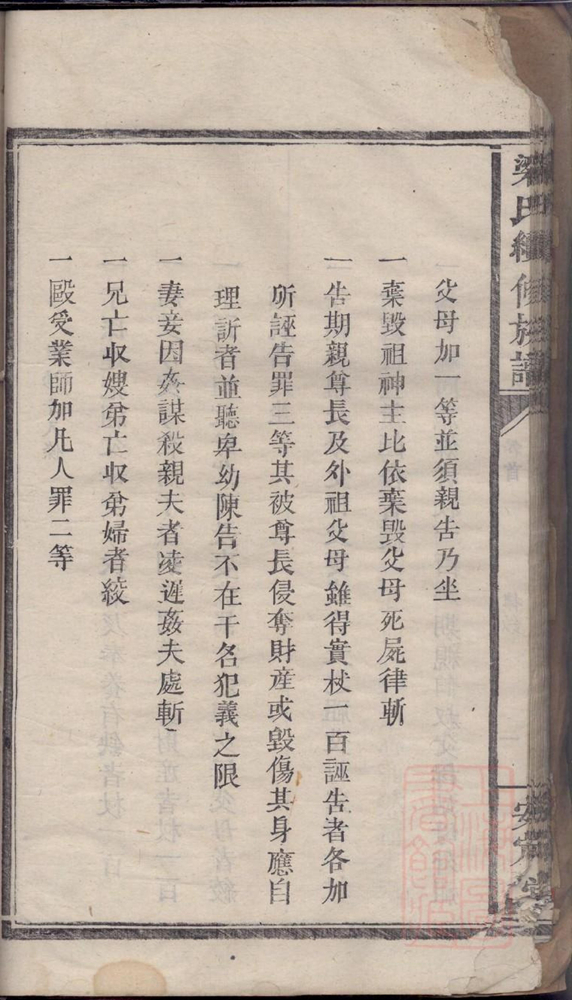 父母加一等並須親告乃坐
一棄毀祖神主比依棄毀父母死屍律斬
一告期親尊長及外祖父母雖得實杖一百誣告者各加
所誣告罪三等其被尊長侵奪財產或毀傷其身應自
理訴者並聽卑幼陳告不在干名犯義之限
一妻妾因姦謀殺親夫者凌遲姦夫處斬
一兄亡収嫂弟亡収弟婦者絞
一毆受業師加凡人罪二等
氏續修族譜
首